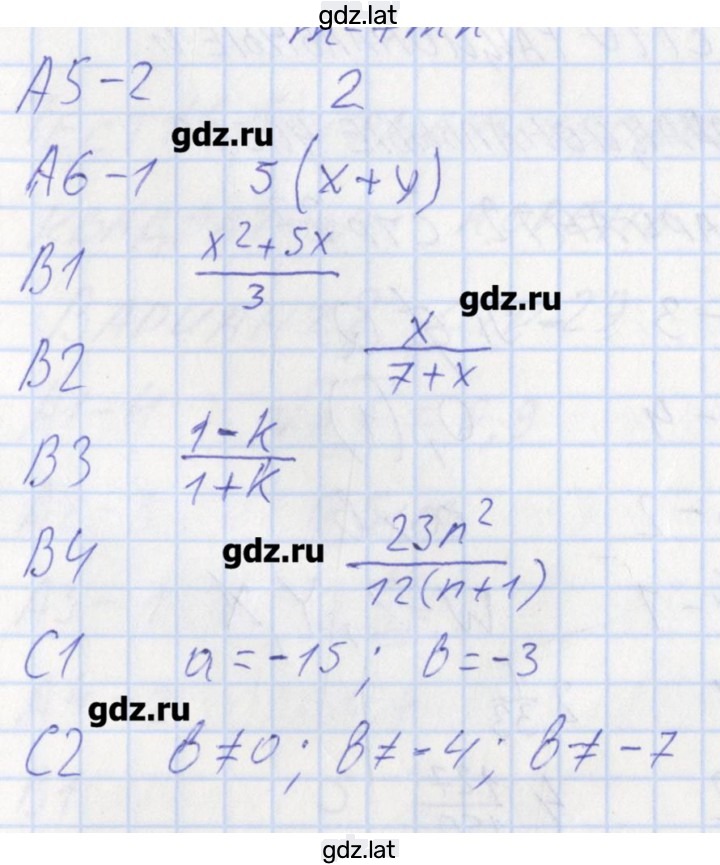 gdz.lat
A5-2 2
gdz.ru
A6-1 5(x+y)
B1 x²+5x
3
gdz.ru
B2 x
7+x
B3 1-k
1+k
B4 23n²
12(n+1)
gdz.ru
C1 a=-15; b=-3
gdz.ru
C2 b≠0; b≠-4; b≠-7
gdz.lat